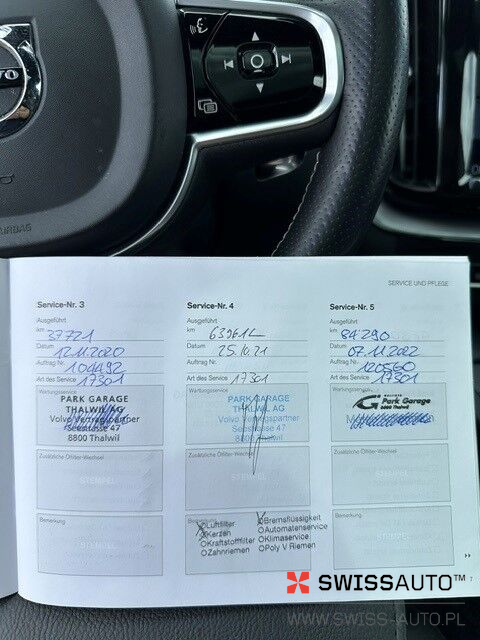 VO
AIRBAG
SERVICE UND PFLEGE
Service-Nr. 3
Ausgeführt
km 37721
Datum 12.11.2020
Auftrag Nr. 104492
Art des Service 17301
Wartungsservice
PARK GARAGE
THALWIL AG
Volvo Vertragspartner
Seestrasse 47
8800 Thalwil
Zusätzliche Ölfilter-Wechsel
STEMPEL
Bemerkung
STEMPEL
Service-Nr. 4
Ausgeführt
km 63961
Datum 25.10.21
Auftrag Nr.
Art des Service 17301
Wartungsservice
PARK GARAGE
THALWIL AG
Volvo Vertragspartner
Seestrasse 47
8800 Thalwil
Zusätzliche Ölfilter-Wechsel
STEMPEL
Bemerkung
Luftfilter
Kerzen
Kraftstofffilter
Zahnriemen
Bremsflüssigkeit
Automatenservice
Klimaservice
Poly V Riemen
Service-Nr. 5
Ausgeführt
km 84290
Datum 07.11.2022
Auftrag Nr. 120560
Art des Service 17301
Wartungsservice
Park Garage
Thalwil AG
Zusätzliche Ölfilter-Wechsel
STEMPEL
Bemerkung
STEMPEL
7
SWISSAUTO™
WWW.SWISS-AUTO.PL